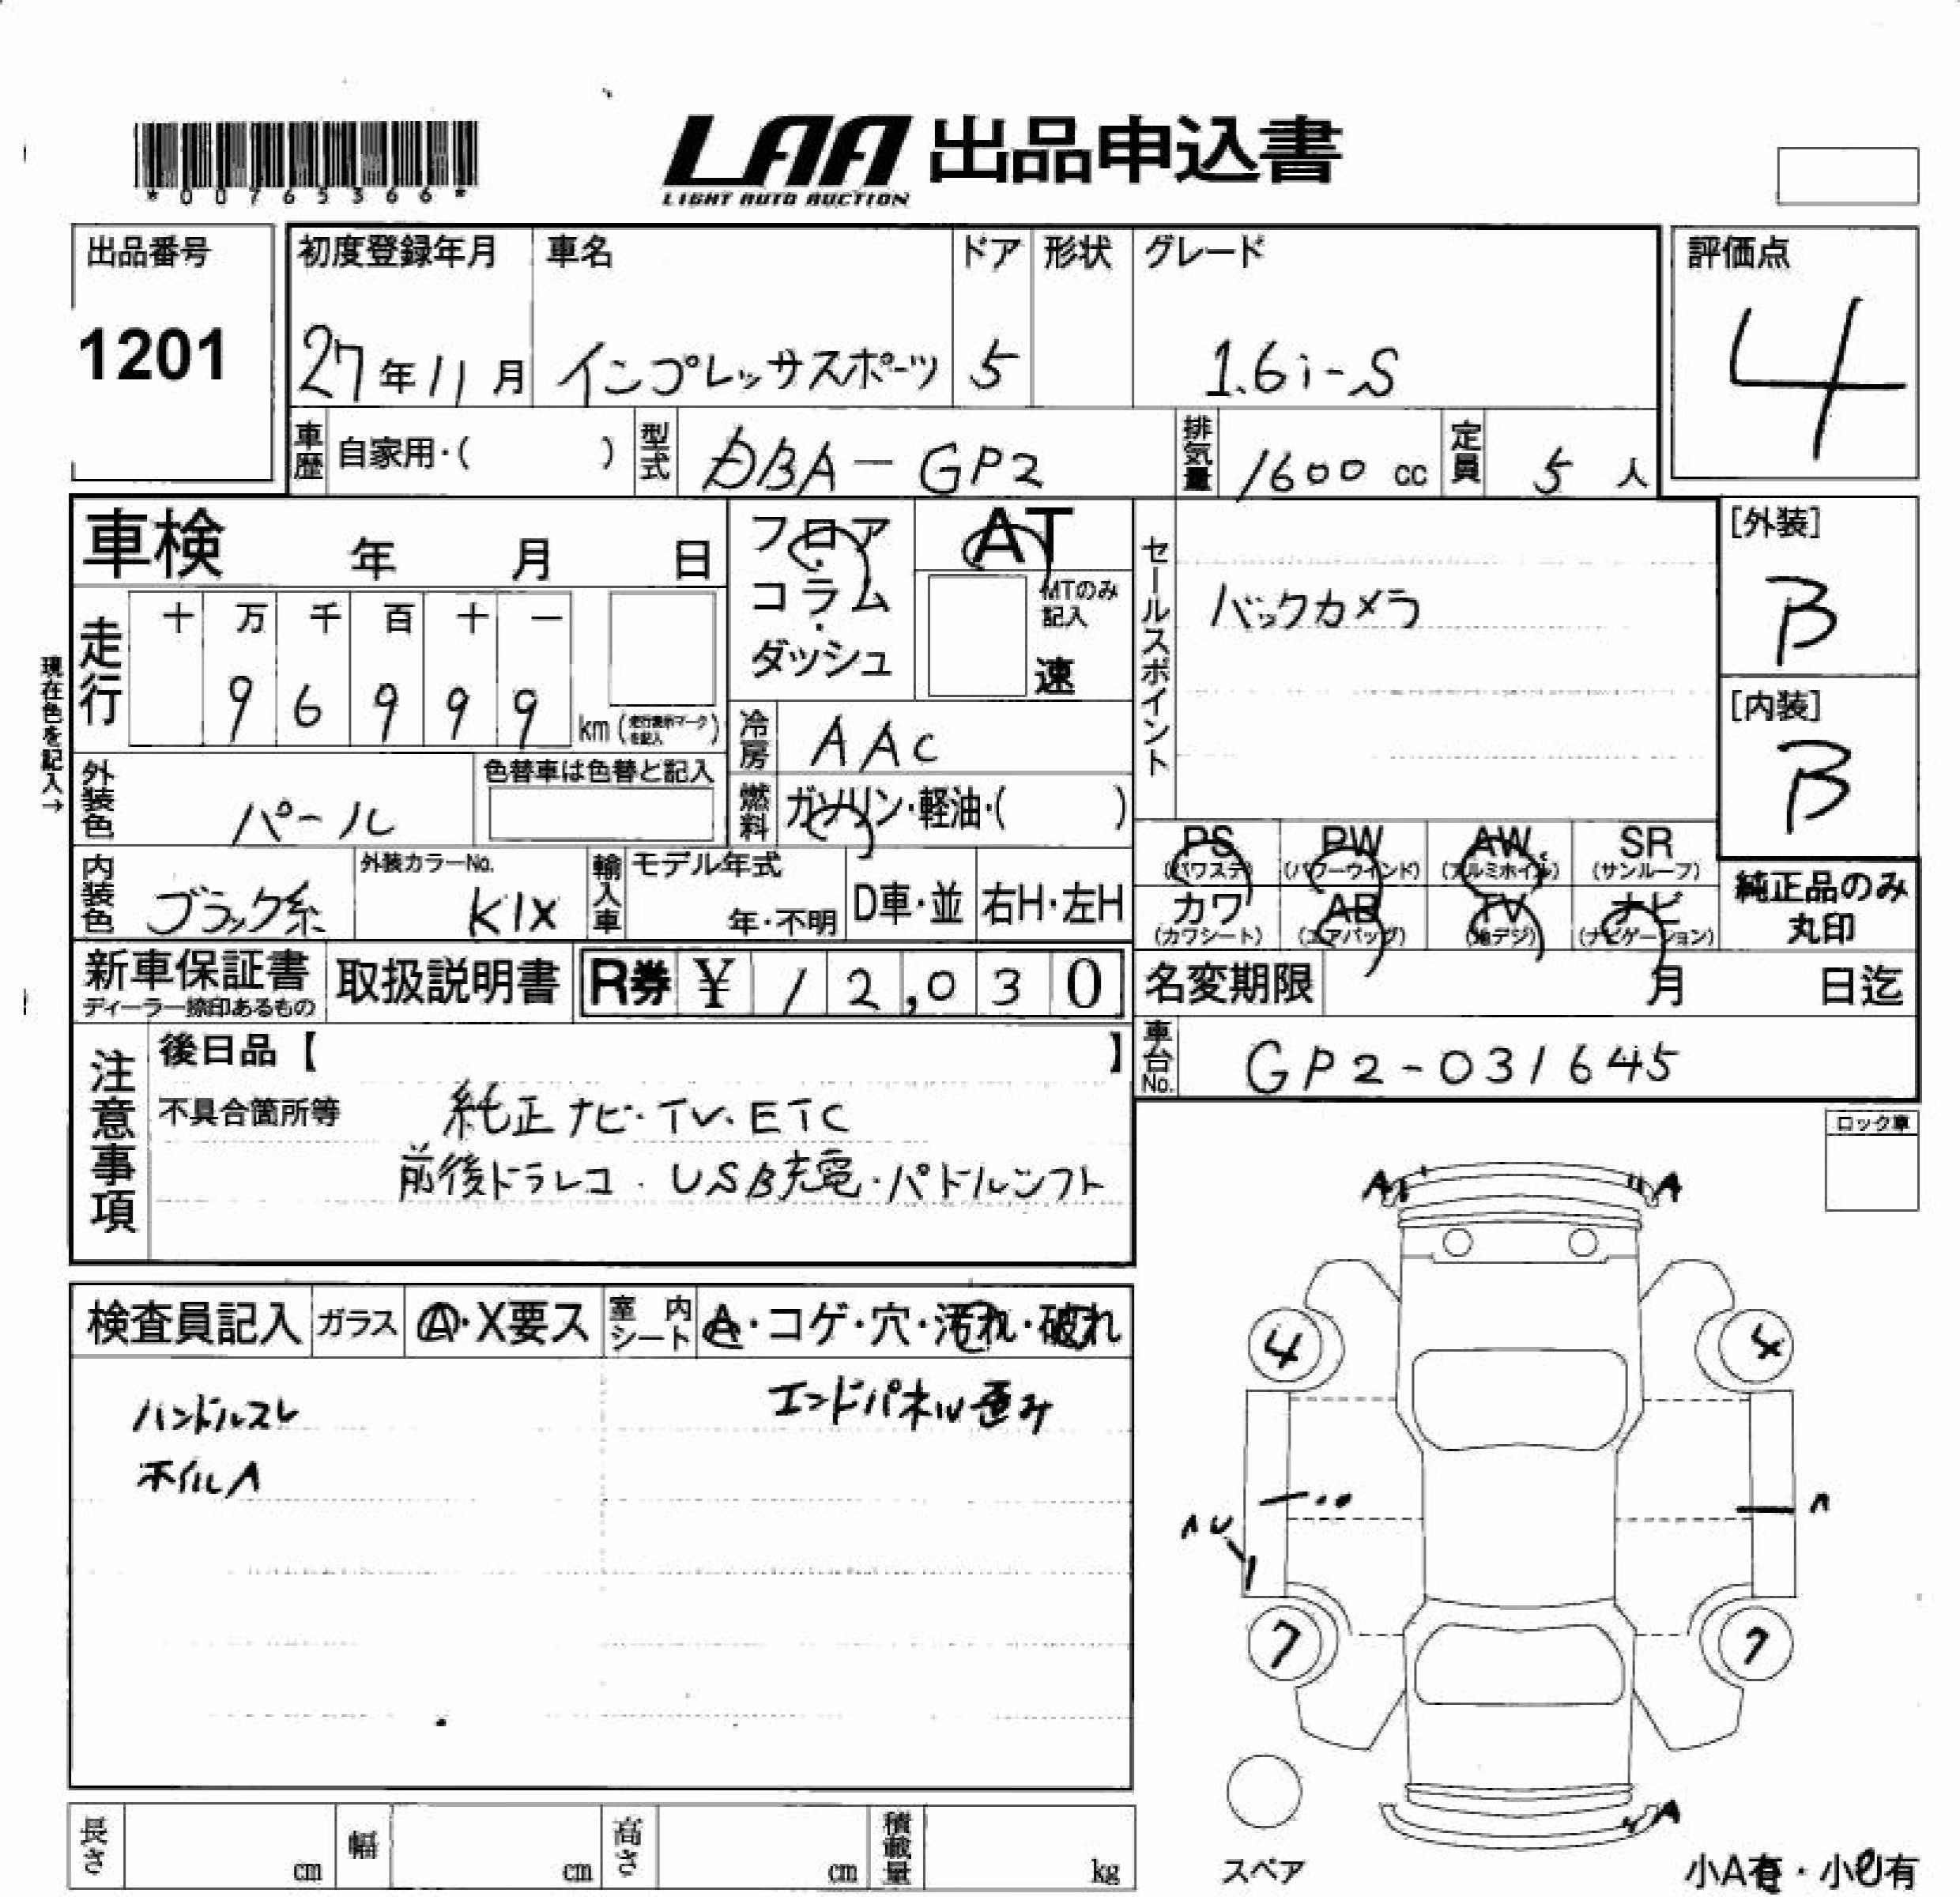 *00765366*
LAA 出品申込書
LIGHT AUTO AUCTION
出品番号
1201
初度登録年月 車名 ドア 形状 グレード
27年11月 インプレッサスポーツ 5 1.6i-S
評価点
4
車歴 自家用・( ) 型式 DBA-GP2 排気量 1600 cc 定員 5 人
車検 年 月 日
フロア・コラム・ダッシュ
AT
MTのみ記入
速
セールスポイント
バックカメラ
[外装]
B
[内装]
B
現在色を記入→
走行 十 万 千 百 十 一
9 6 9 9 9 km (走行表示マークを記入)
冷房 AAC
燃料 ガソリン・軽油・( )
外装色 パール
色替車は色替と記入
内装色 ブラック系
外装カラーNo. K1X
輸入車 モデル年式 年・不明 D車・並 右H・左H
PS (パワステ) PW (パワーウインド) AW (アルミホイル) SR (サンルーフ)
カワ (カワシート) AB (エアバッグ) TV (地デジ) ナビ (ナビゲーション)
純正品のみ丸印
新車保証書 ディーラー捺印あるもの 取扱説明書 R券 ¥ 12,030
名変期限 月 日迄
車台No. GP2-031645
注意事項
後日品【 】
不具合箇所等 純正ナビ・TV・ETC
前後ドラレコ・USB充電・パドルシフト
ロック車
検査員記入 ガラス A・X要ス 室内シート A・コゲ・穴・汚れ・破れ
ハンドルスレ エンドパネル歪み
ホイルA
A A
4 4
7 7
A
スペア
小A有・小U有
長さ cm 幅 cm 高さ cm 積載量 kg